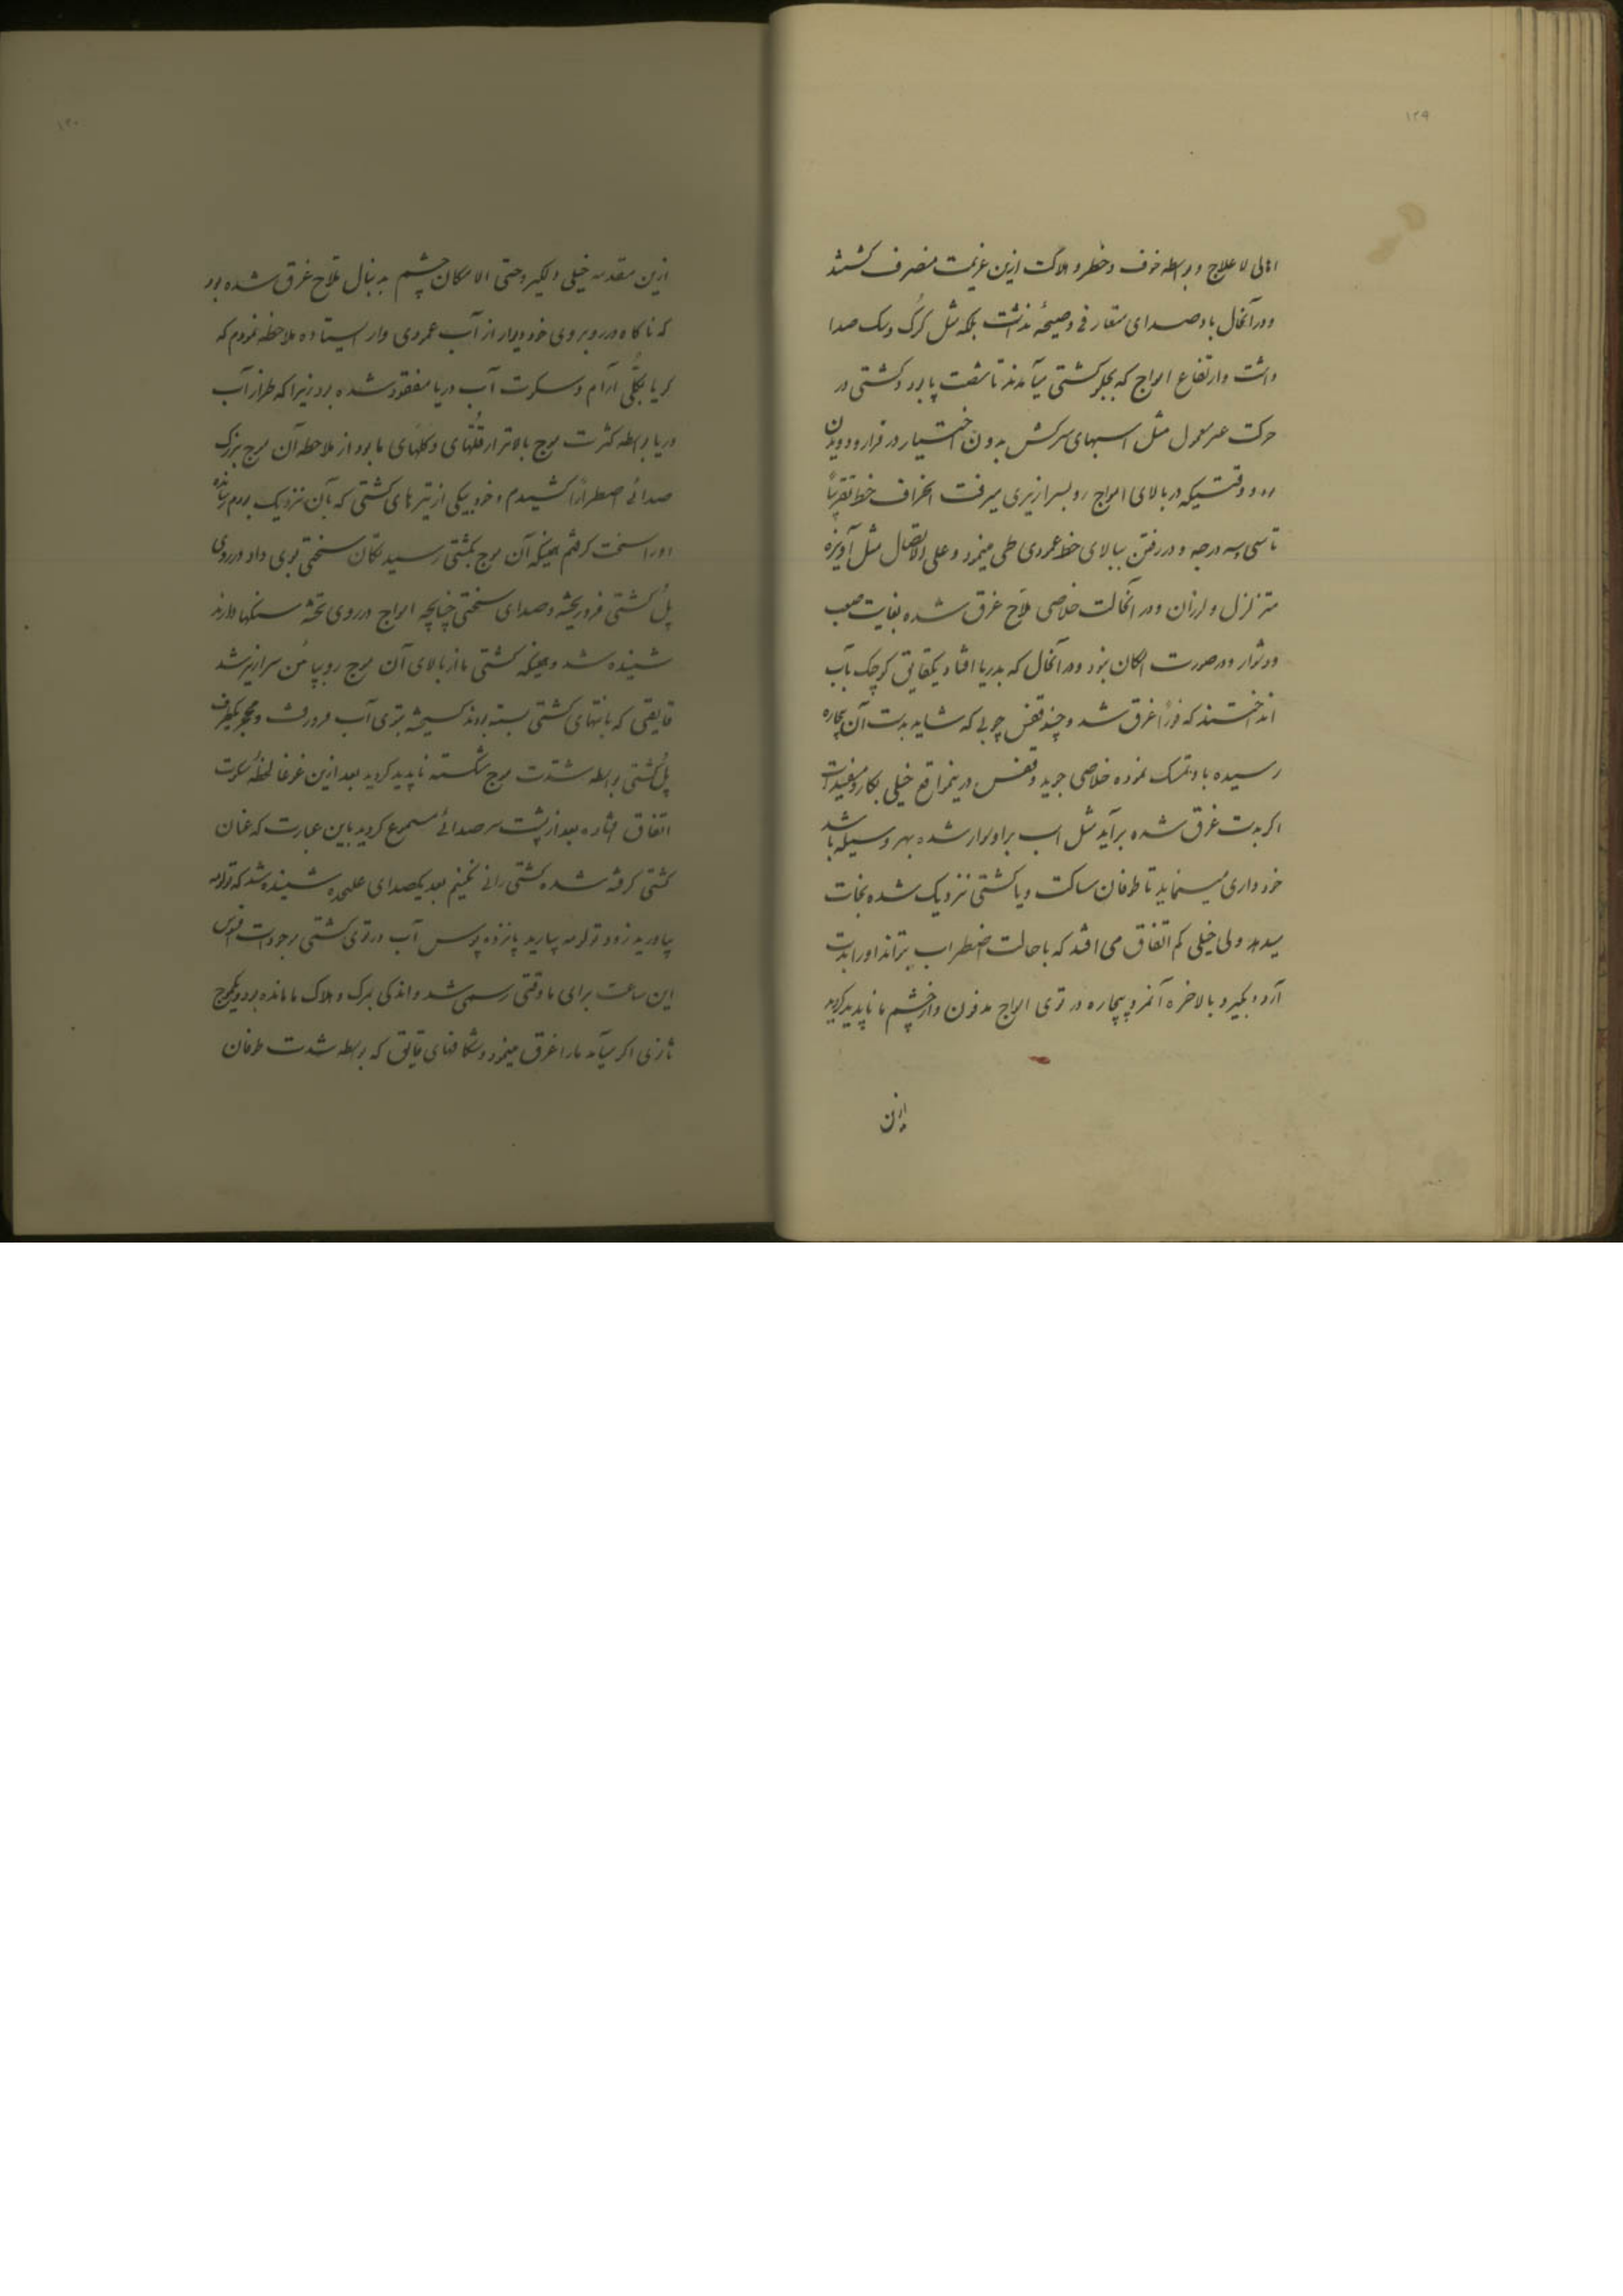 ١٢٩
اهالی لا علاج و بواسطه خوف و خطر و هلاکت ازین عزیمت منصرف گشتند
و در آنحال باد صدای متعارفی و صیحهٔ نداشت بلکه مثل گرگ و سگ صدا
داشت و ارتفاع امواج که بجلو کشتی میآمدند تا شصت پا بود و کشتی در
حرکت غیر معمول مثل اسبهای سرکش بدون اختیار در فرار و دویدن
بود و وقتیکه در بالای امواج رو بسرازیری میرفت انحراف خط تقریباً
تا سی و سه درجه و در رفتن ببالای خط عمودی طی مینمود و علی الاتصال مثل آویزه
متزلزل و لرزان و در آنحالت خلاصی ملاح غرق شده بغایت صعب
و دشوار و در صورت امکان نبود و در آنحال که بدریا افتاد یکقایق کوچک بآب
انداختند که فوراً غرق شد و چند قفس چوبی که شاید بدست آن بیچاره
رسیده باو تمسک نموده خلاصی جوید و قفس درینمواقع خیلی بکار و مفید است
اگر بدست غرق شده برآید مثل اسب بر او سوار شده بهر وسیله باشد
خودداری مینماید تا طوفان ساکت و یا کشتی نزدیک شده نجات
میدهد ولی خیلی کم اتفاق می افتد که با حالت اضطراب بتواند او را بدست
آرد و بگیرد بالاخره آنمرد بیچاره در توی امواج مدفون و از چشم ما ناپدید گردید
ازین
١٣٠
ازین مقدمه خیلی دلگیر و حتی الامکان چشم بدنبال ملاح غرق شده بود
که ناگاه در روبروی خود دیوار از آب عمودی وار ایستاده ملاحظه نمودم که
گویا بکلی آرام و سکوت آب دریا مفقود شده بود زیرا که طراز آب
دریا بواسطه کثرت موج بالاتر از قلّهای و کلهای ما بود از ملاحظه آن موج بزرگ
صدائی اضطراراً کشیدم و خود بیکی از تیرهای کشتی که بآن نزدیک بودم
او را سخت گرفتم همینکه آن موج بکشتی رسید تکان سختی قوی داد و در روی
پل کشتی فرو ریخته و صدای سختی چنانچه امواج در روی تخته سنگها دارند
شنیده شد و همینکه کشتی ما از بالای آن موج رو بپائین سرازیر شد
قایقی که بانتهای کشتی بسته بودند گسیخته بتوی آب فرو رفت و محجر یکطرف
پل کشتی بواسطه شدت موج شکسته ناپدید گردید بعد ازین غوغا لحظهٔ سکوت
اتفاق افتاده بعد از پشت سر صدائی مسموع گردید باین عبارت که عنان
کشتی گرفته شده کشتی رانی نکنیم بعد یکصدای علیحده شنیده شد که تولومبه
بیاورید زود تولومبه بیارید پانزده پوس آب در توی کشتی موجود است افسوس
این ساعت برای ما وقتی رسمی شد و اندکی بمرگ و هلاک ما مانده بود و یکموج
تازی اگر میآمد ما را غرق مینمود و شکافهای قایق که بواسطه شدت طوفان